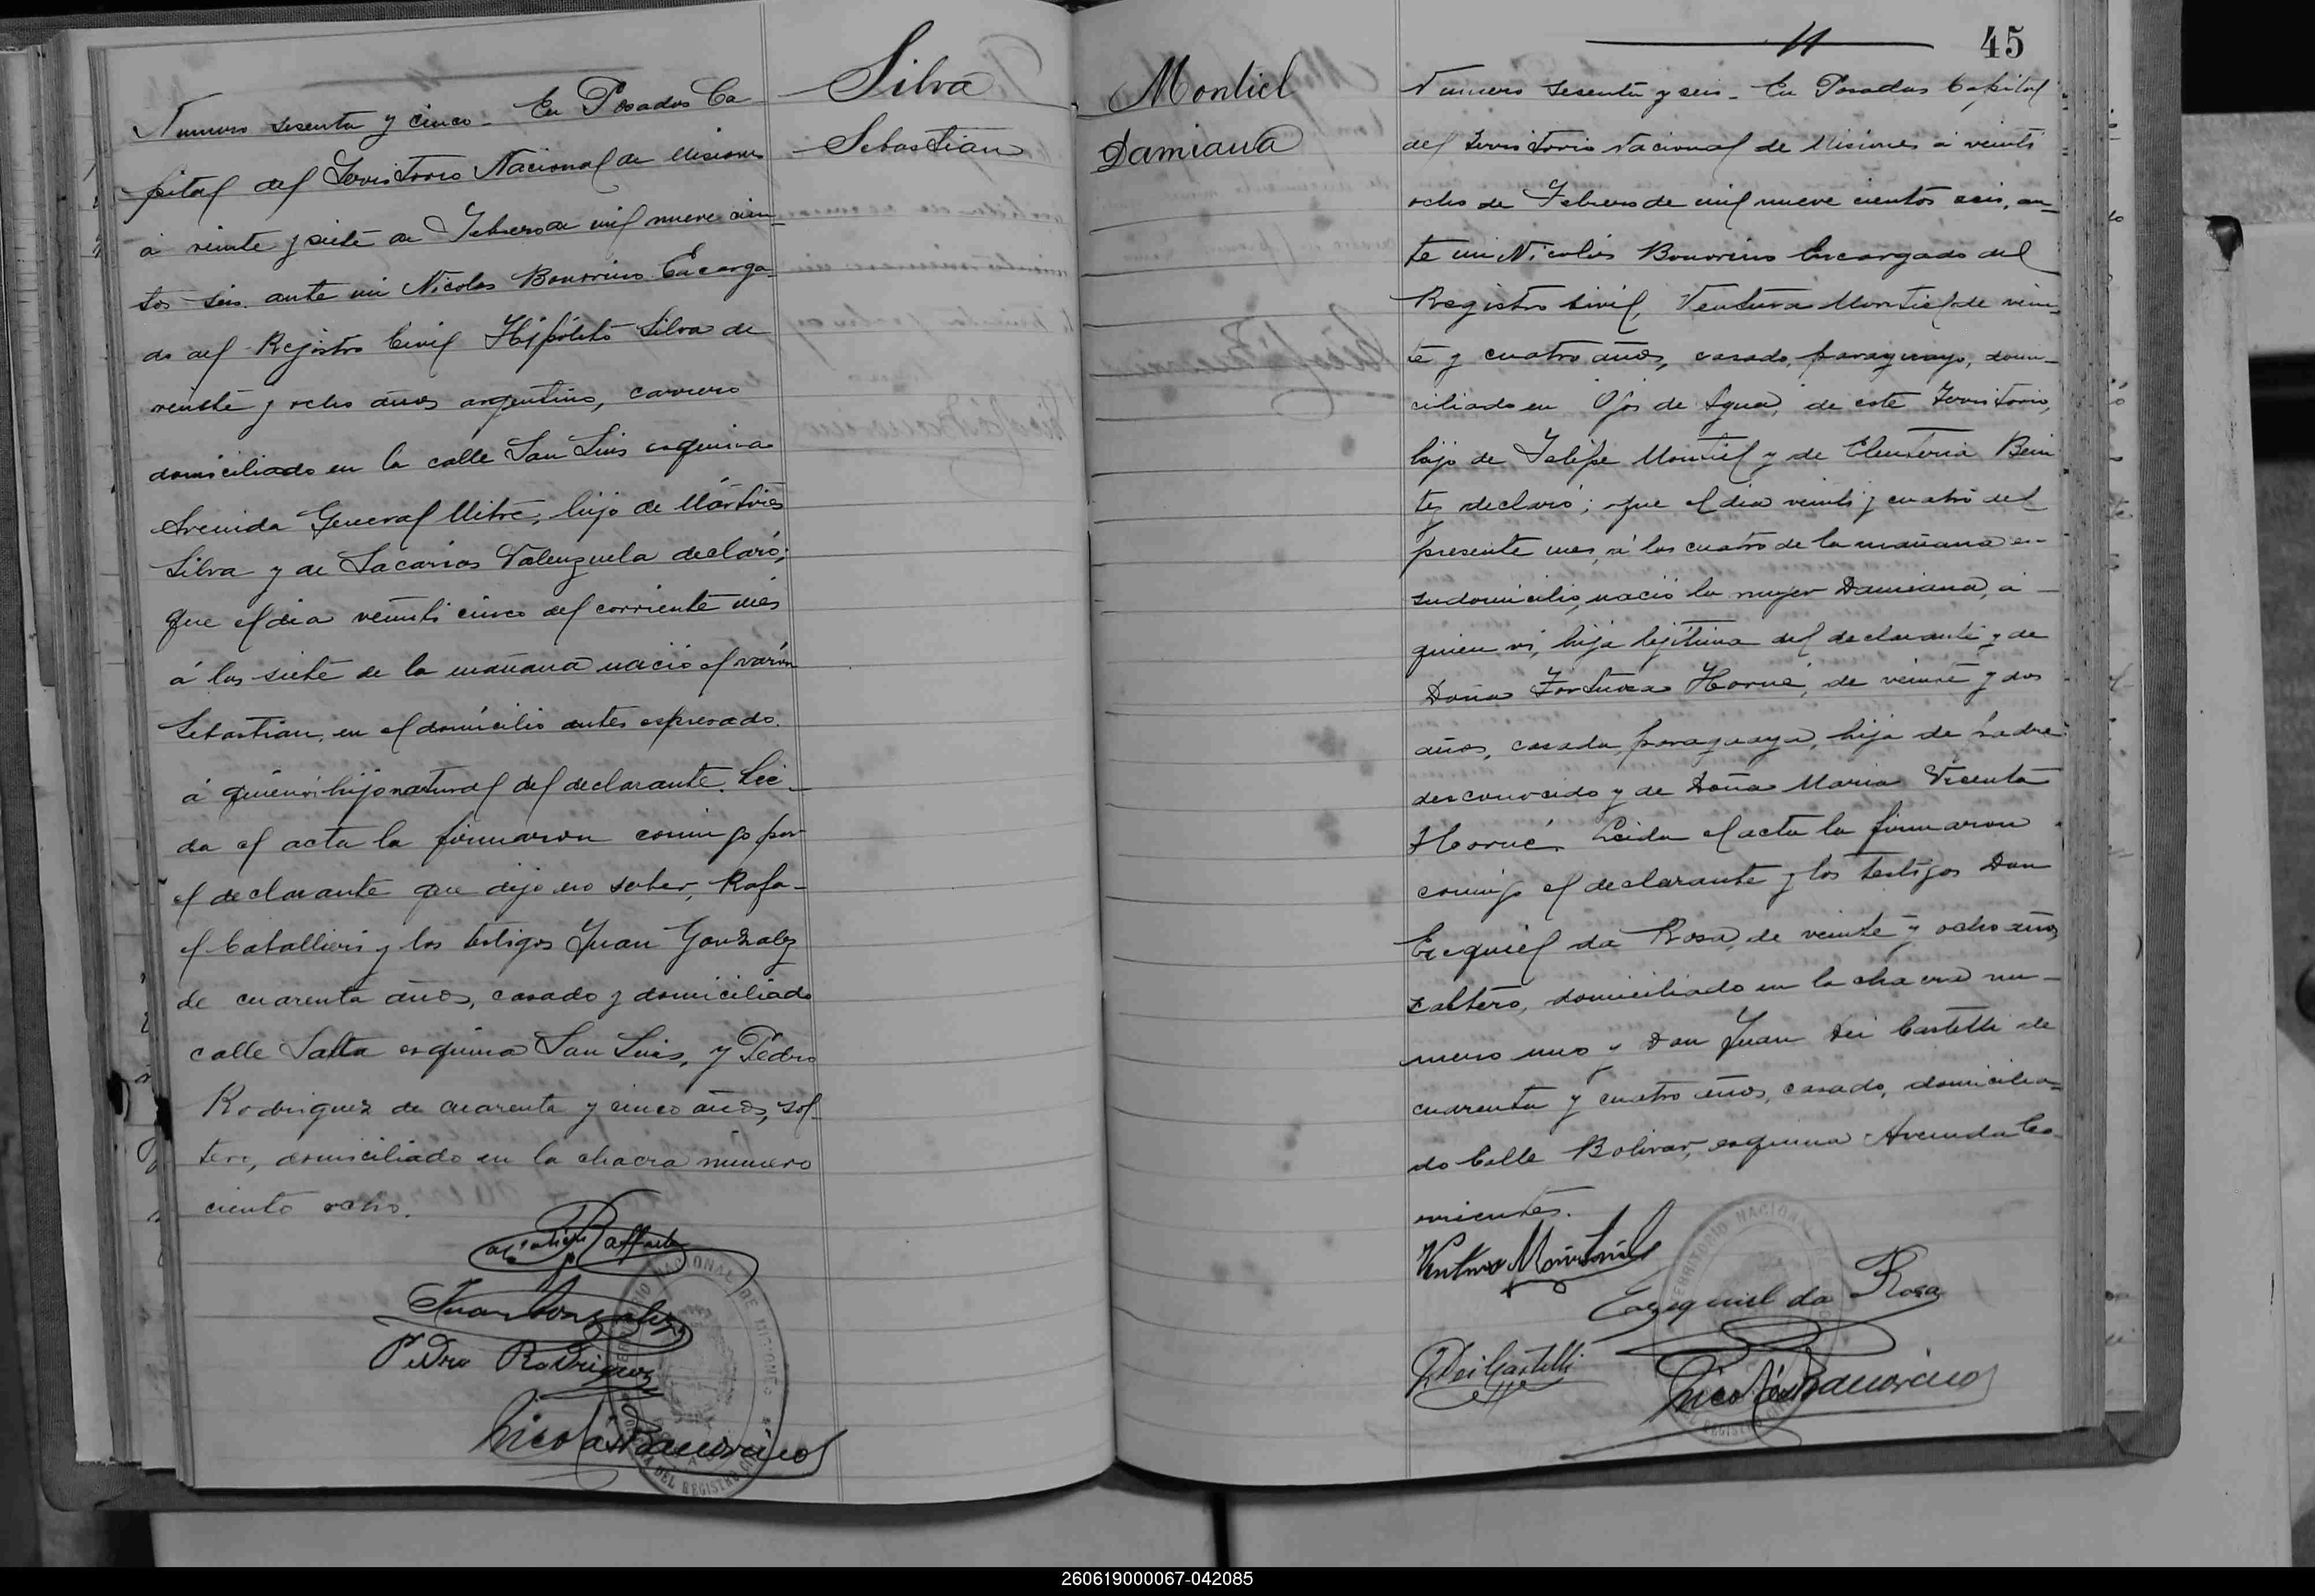 Silva
Sebastian
Numero sesenta y cinco - En Posadas Ca
pital del Territorio Nacional de Misiones
á veinte y siete de Febrero de mil nueve cien
tos seis. ante mi Nicolas Bonorino Encarga-
do del Registro Civil Hipólito Silva de
veinte y ocho años argentino, carrero
domiciliado en la calle San Luis esquina
Avenida General Mitre, hijo de Mártires
Silva y de Sacarias Valenzuela declaró;
que el dia veinti cinco del corriente mes
á las siete de la mañana nació el varón
Sebastian, en el domicilio antes espresado.
á quien vi hijo natural del declarante. Lei-
da el acta la firmaron conmigo por
el declarante que dijo no saber, Rafa-
el Catallieri y los testigos Juan Gonzalez
de cuarenta años, casado y domiciliado
calle Salta esquina San Luis, y Pedro
Rodriguez de cuarenta y cinco años, sol-
tero, domiciliado en la chacra número
ciento ocho.
Raffaele
Juan Gonzalez
Pedro Rodriguez
Nicolás Bonorino
TERRITORIO NACIONAL DE MISIONES
DEL REGISTRO
45
11
Montiel
Damiana
Numero sesenta y seis - En Posadas Capital
del Territorio Nacional de Misiones á veinti
ocho de Febrero de mil nueve cientos seis, an-
te mi Nicolás Bonorino Encargado del
Registro Civil, Ventura Montiel de vein-
te y cuatro años, casado, paraguayo, domi-
ciliado en Ojo de Agua, de este Territorio,
hijo de Felipe Montiel y de Eleuteria Beni
tez declaró; que el dia veinti y cuatro del
presente mes, á las cuatro de la mañana en
su domicilio, nació la mujer Damiana, á
quien vi, hija lejítima del declarante y de
Doña Fortuosa Horné, de veinte y dos
años, casada, paraguaya, hija de padre
desconocido y de Doña Maria Vicenta
Horné. Leida el acta la firmaron
conmigo el declarante y los testigos Don
Ezequiel da Rosa, de veinte y ocho años
soltero, domiciliado en la chacra nu-
mero uno y Don Juan Dei Castelli de
cuarenta y cuatro años, casado, domicilia-
do Calle Bolivar, esquina Avenida Co-
rrientes.
Ventura Montiel
Ezequiel da Rosa
J. Dei Castelli
Nicolás Bonorino
TERRITORIO NACIONAL
DEL REGISTRO
260619000067-042085